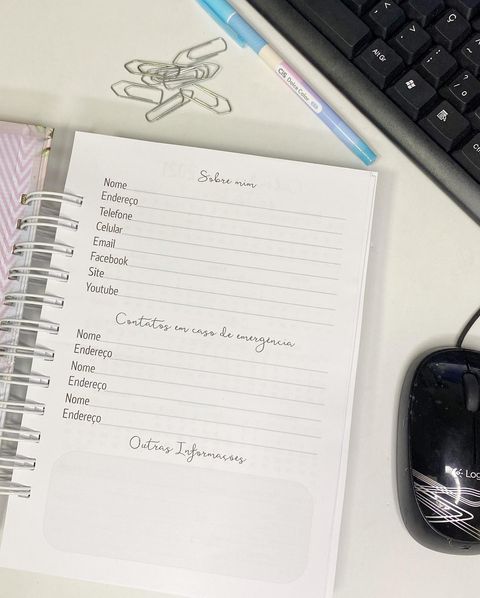 Sobre mim
Nome
Endereço
Telefone
Celular
Email
Facebook
Site
Youtube
Contatos em caso de emergência
Nome
Endereço
Nome
Endereço
Nome
Endereço
Outras Informações
CIS Dolce Color
Alt Gr
Ç